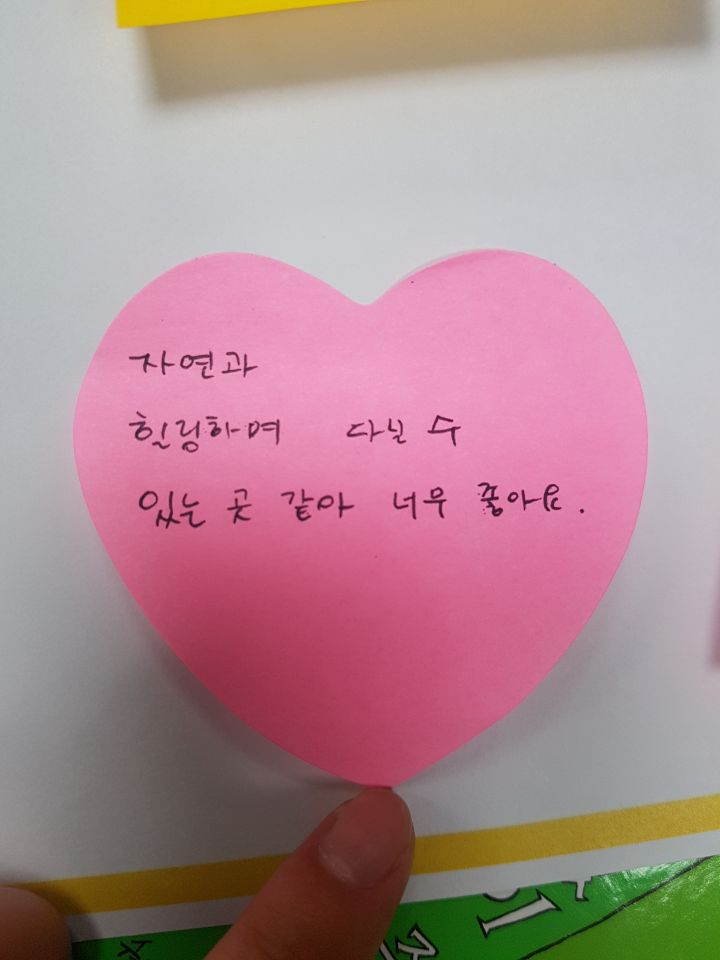 자연과
힐링하며 다닐 수
있는 곳 같아 너무 좋아요.